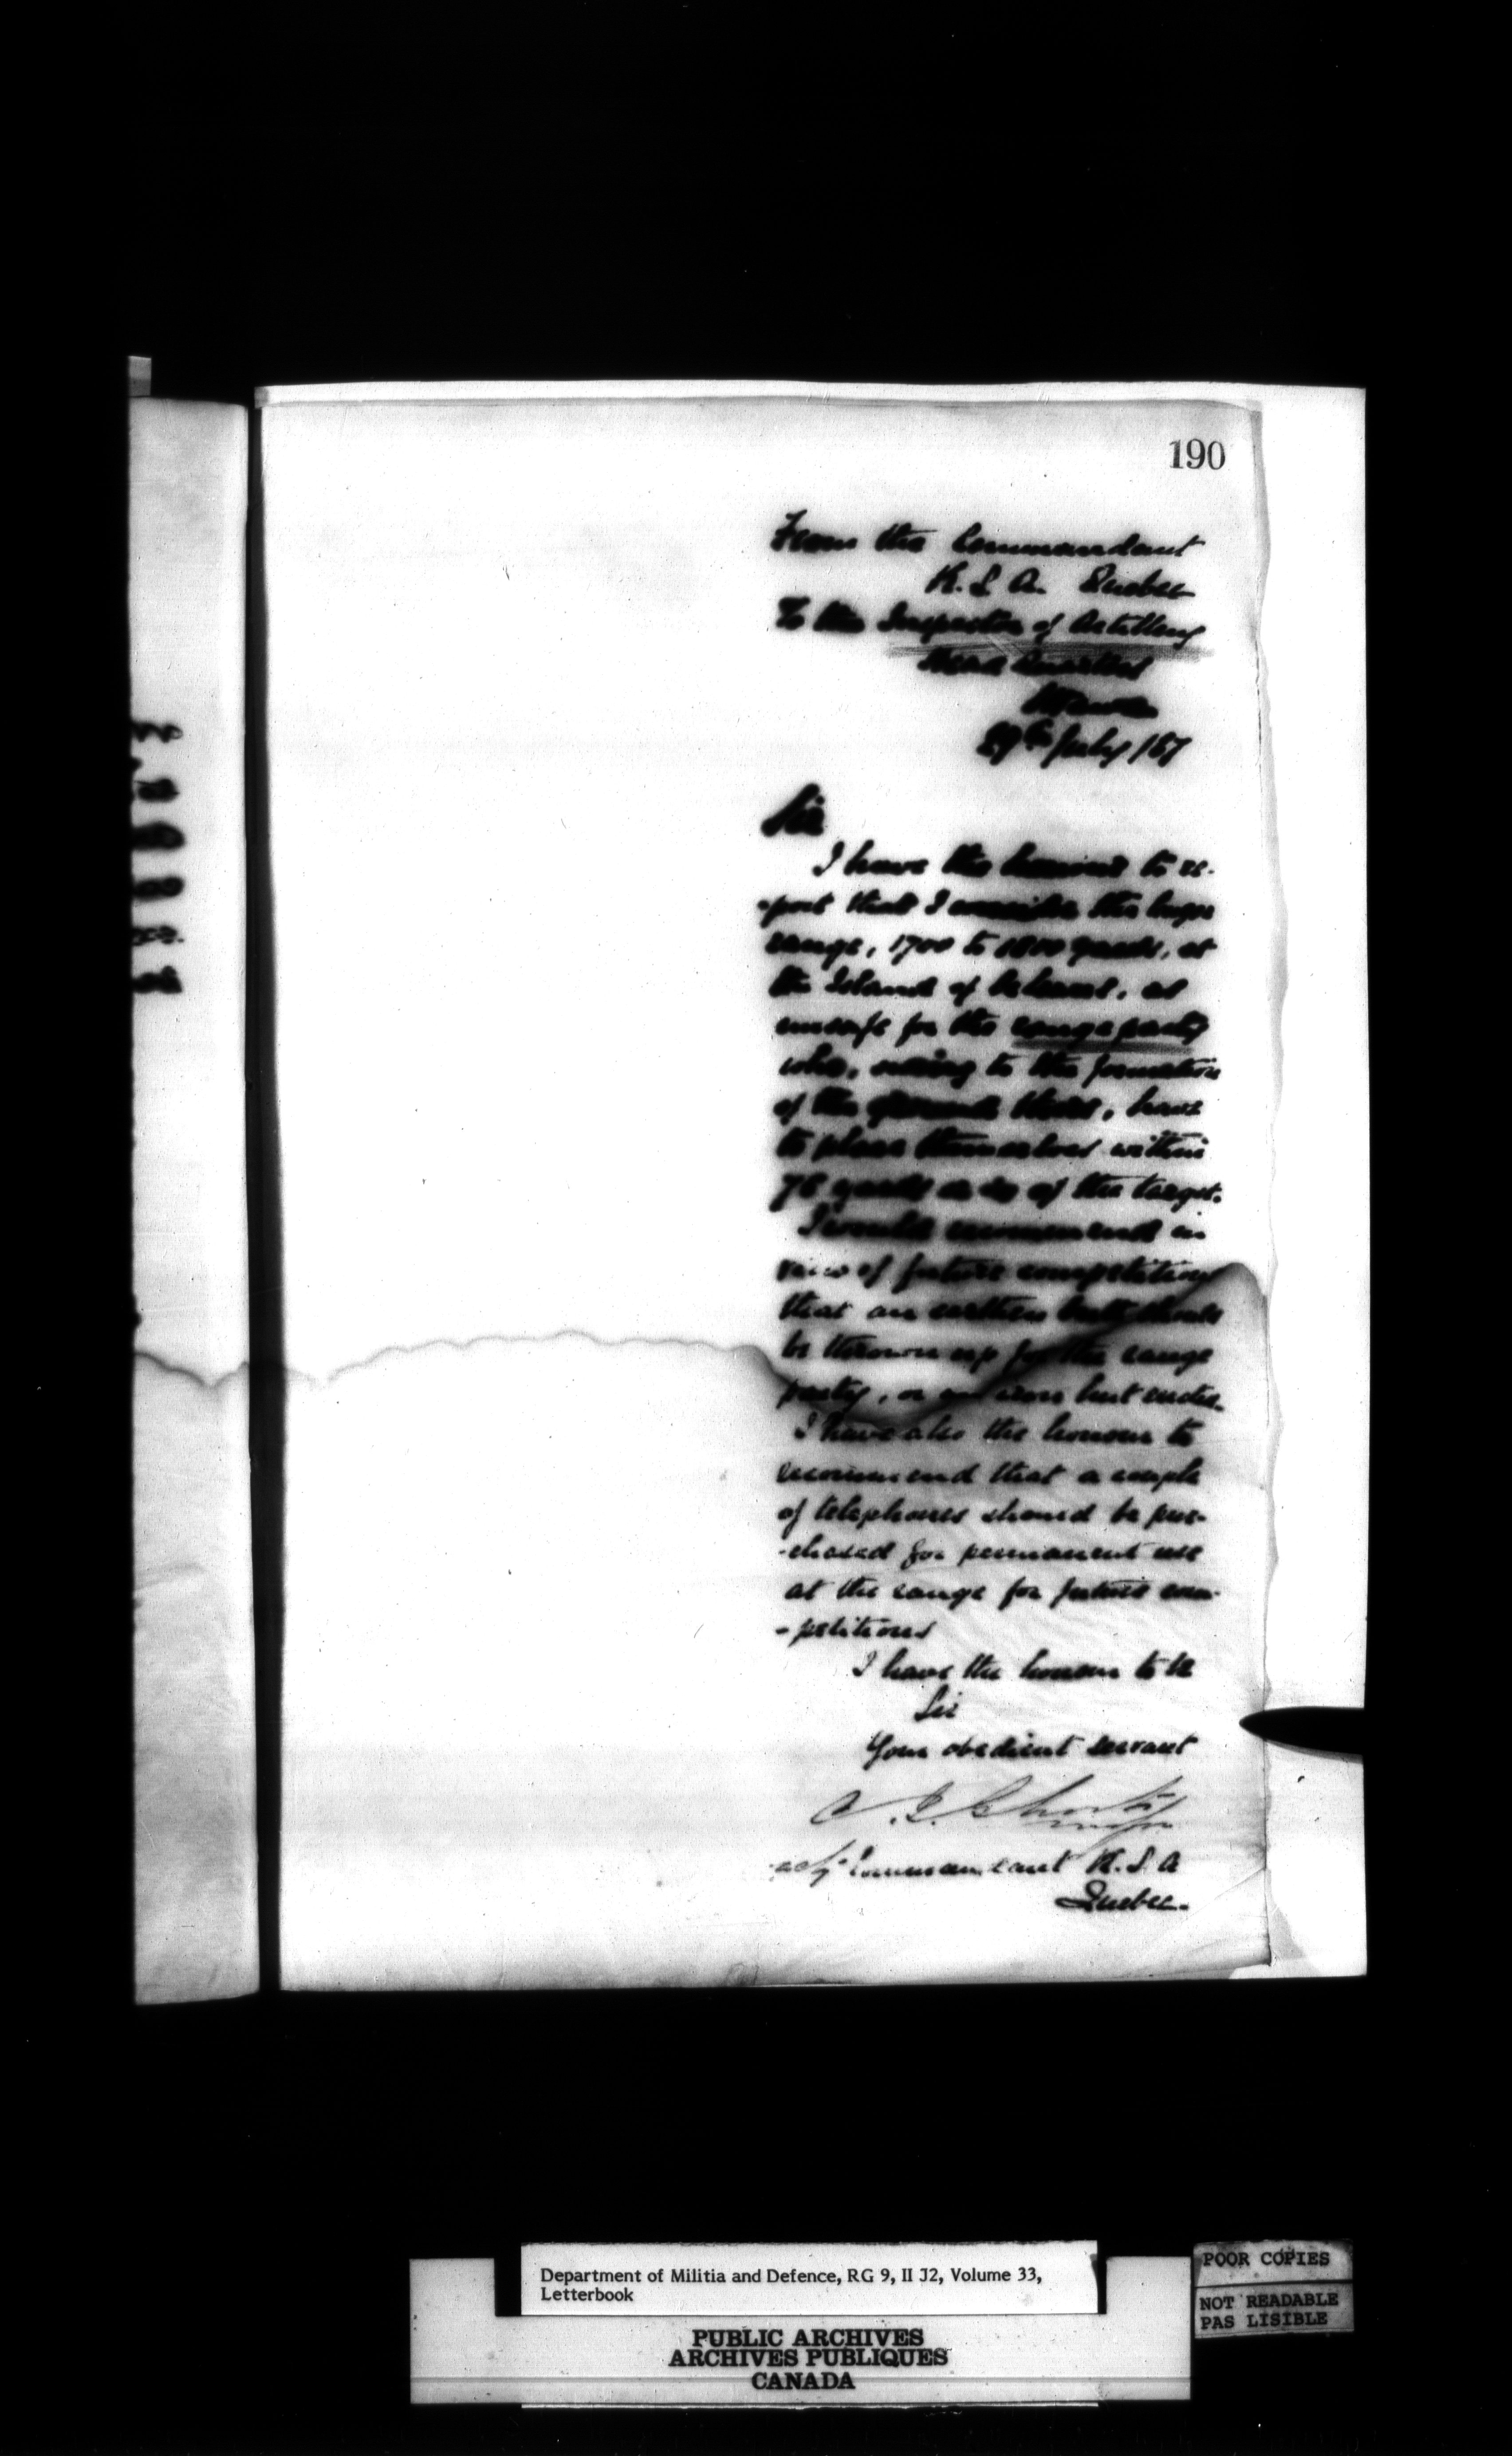 190
From the Commandant
R. S. A. Quebec
To the Inspector of Artillery
Head Quarters
Ottawa
29th July /87
Sir
I have the honour to re-
-port that I consider the large
range, 1700 to 1800 yards, at
the Island of Orleans, as
unsafe for the range party
who, owing to the formation
of the ground there, have
to place themselves within
75 yards or so of the target.
I would recommend in
view of future competitions
that an earthen butt should
be thrown up for the range
party, or an iron hut
I have also the honour to
recommend that a couple
of telephones should be pur-
-chased for permanent use
at the range for future com-
-petitions
I have the honour to be
Sir
Your obedient servant
Commandant R. S. A
Quebec.
Department of Militia and Defence, RG 9, II J2, Volume 33,
Letterbook
PUBLIC ARCHIVES
ARCHIVES PUBLIQUES
CANADA
POOR COPIES
NOT READABLE
PAS LISIBLE